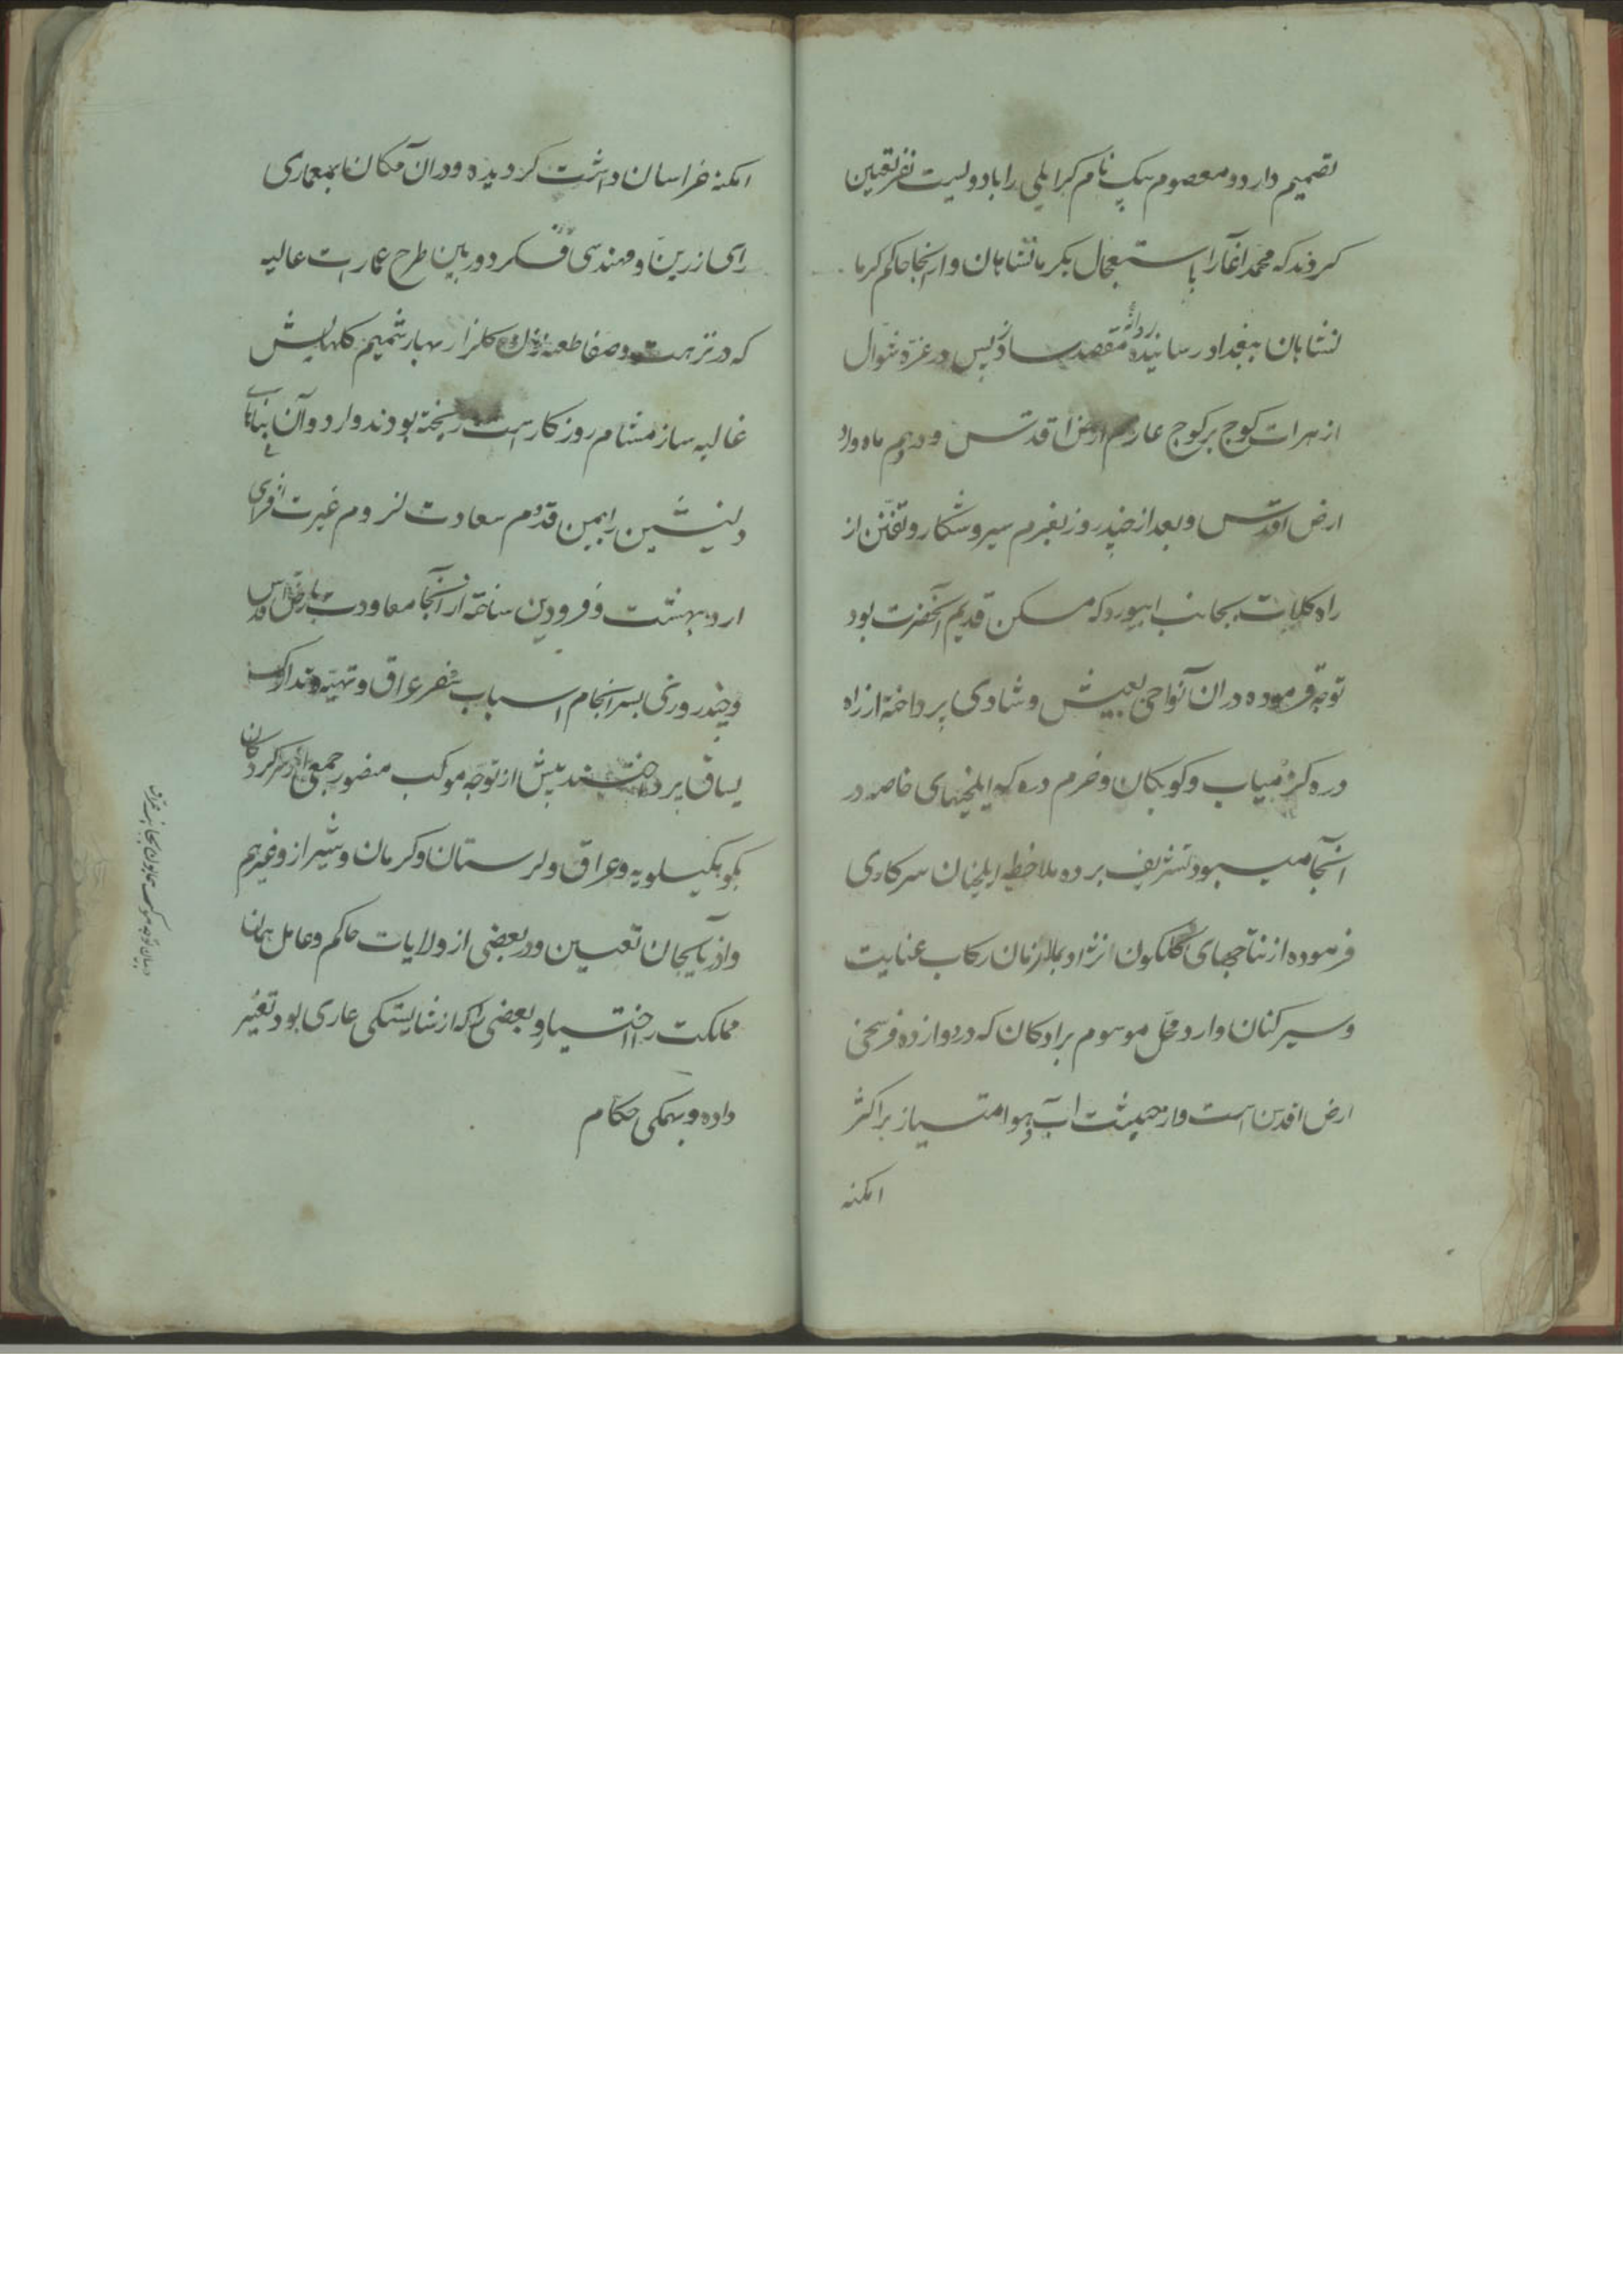 تصمیم دارد و معصوم بیک نام کرایلی را با دویست نفر تعیین
کردند که محمد آغا را باستعجال بکرمانشاهان و از آنجا حاکم کرما
نشاهان ببغداد رسانیده روانهٔ مقصد سازد پس در غرّه شوال
از هرات کوچ بر کوچ عازم ارض اقدس و دهم ماه وارد
ارض اقدس و بعد از چند روز بعزم سیر و شکار و تفنّن از
راه کلات بجانب ابیورد که مسکن قدیم آنحضرت بود
توجّه فرموده در ان نواحی بعیش و شادی پرداخته از راه
دره کز و میاب و کوبکان و خرم دره که ایلخیهای خاصه در
آنجا میبود تشریف برده ملاحظه ایلخیان سرکاری
فرموده از نتاجهای گلگون نژاد بملازمان رکاب عنایت
و سیرکنان وارد محلّ موسوم برادکان که در دوازده فرسخی
ارض اقدس است و از حیثیت آب و هوا امتیاز بر اکثر
امکنه
امکنه خراسان داشت کردیده و در آن مکان بمعماری
رای زرین و مهندسی فکر دوربین طرح عمارت عالیه
که در نزهت و صفا طعنه زن کلزار بهار شمیم کلهایش
غالیه ساز مشام روزکار است ریخته بودند وارد و آن بنای
دلنشین را بیمن قدوم سعادت لزوم غیرت افزای
اردیبهشت و فرودین ساخته از آنجا معاودت بارض اقدس
و چند روزی بسرانجام اسباب سفر عراق و تهیّه و تدارک
یساق پرداختند پیش از توجّه موکب منصور جمعی از سرکردکان
بکوهکیلویه و عراق و لرستان و کرمان و شیراز و غیرهم
و اذربایجان تعیین و در بعضی از ولایات حاکم و عامل همان
مملکت را اختیار و بعضی را که از شایستکی عاری بود تغییر
داده و بهمکی حکام
در بیان توجه موکب همایون بجانب عراق